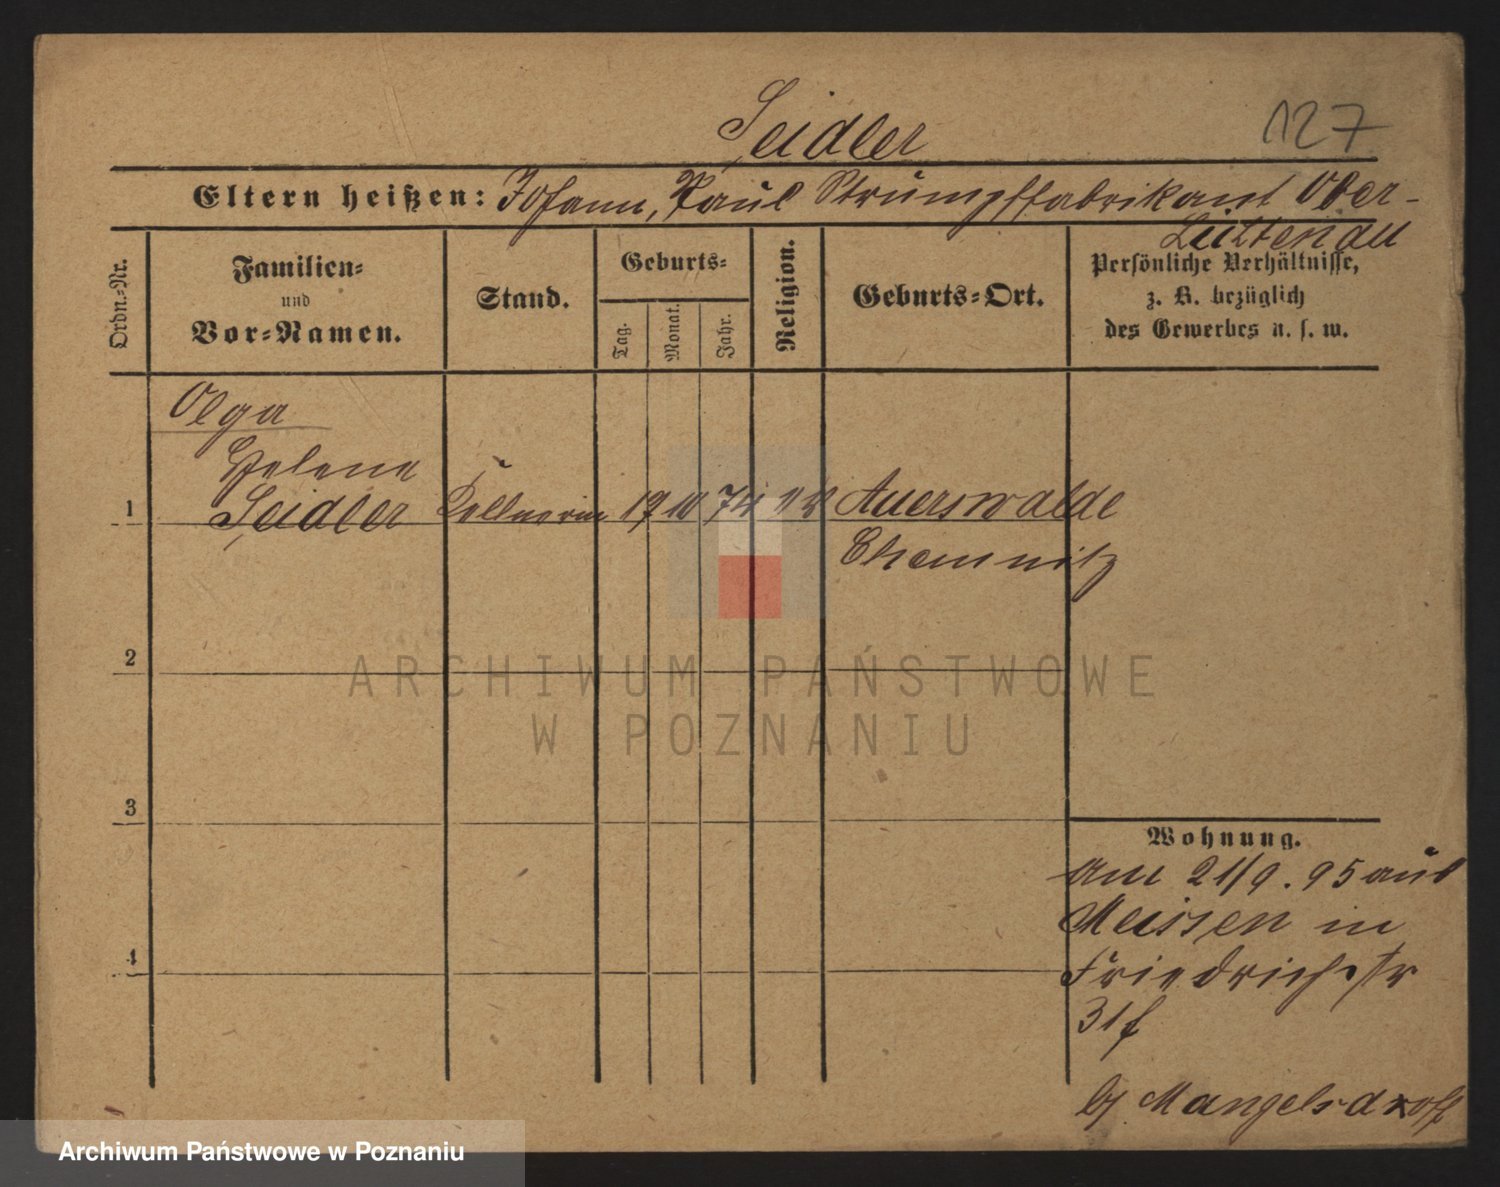 127
Seidler
Eltern heißen: Johann, Paul Strumpffabrikant Ober-
Luttenau
Ordn.-Nr.
Familien-
und
Vor-Namen.
Stand.
Geburts-
Tag.
Monat.
Jahr.
Religion.
Geburts-Ort.
Persönliche Verhältnisse,
z. B. bezüglich
des Gewerbes u. s. w.
Olga
Helene
1 Seidler Kellnerin 19 10 74 Auerswalde
Chemnitz
2
3
4
Wohnung.
Am 21/9. 95 aus
Meissen in
Friedrichstr
31f
b/ Mangelsdroff
ARCHIWUM PAŃSTWOWE
W POZNANIU
Archiwum Państwowe w Poznaniu